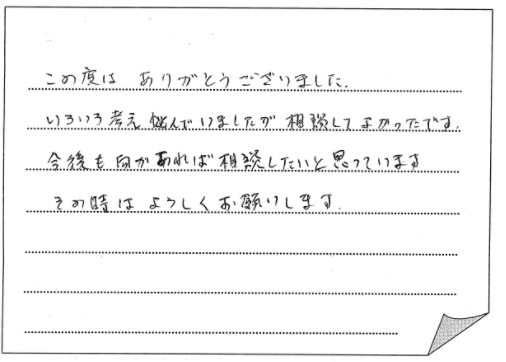 この度は ありがとうございました.
いろいろ考え悩んでいましたが 相談してよかったです.
今後も何かあれば相談したいと思っています
その時は よろしくお願いします.